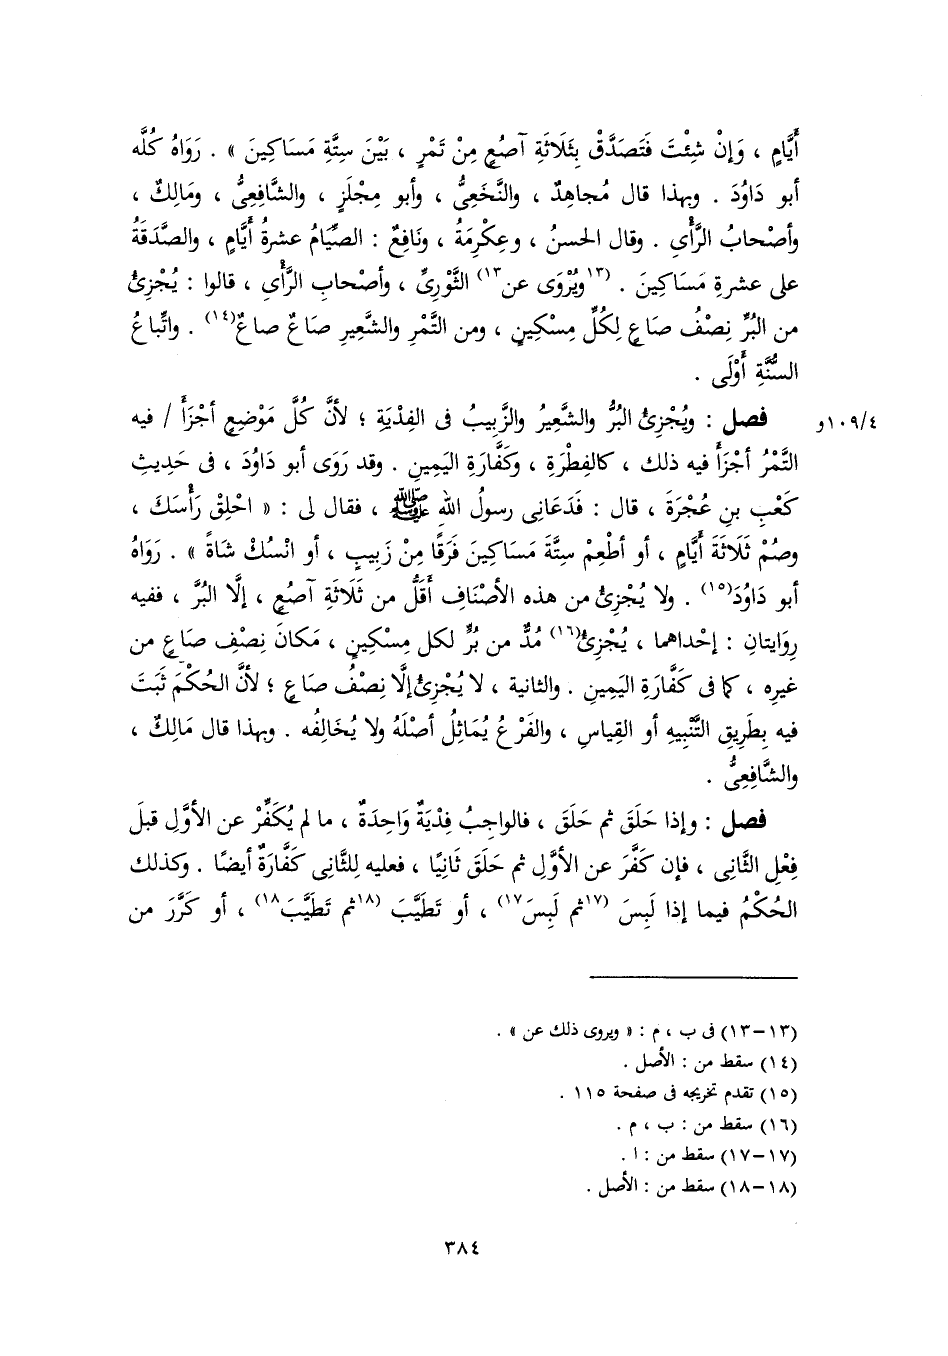 أَيَّامٍ ، وَإنْ شِئْتَ فَتَصَدَّقْ بِثَلَاثَةِ آصُعٍ مِنْ تَمْرٍ ، بَيْنَ سِتَّةِ مَسَاكِينَ » . رَوَاهُ كُلَّه
أبو دَاوُدَ . وبهذا قال مُجاهِدٌ ، والنَّخَعِىُّ ، وأبو مِجْلَزٍ ، والشَّافِعِىُّ ، ومَالِكٌ ،
وأصْحابُ الرَّأْىِ . وقال الحسنُ ، وعِكْرِمَةُ ، ونَافِعٌ : الصِّيَامُ عشرةُ أَيَّامٍ ، والصَّدَقَةُ
على عشرةِ مَسَاكِينَ . (١٣ويُرْوَى عن١٣) الثَّوْرِىِّ ، وأصْحابِ الرَّأْىِ ، قالوا : يُجْزِئُ
من البُرِّ نِصْفُ صَاعٍ لِكُلِّ مِسْكِينٍ ، ومن التَّمْرِ والشَّعِيرِ صَاعٌ صاعٌ(١٤) . واتِّباعُ
السُّنَّةِ أَوْلَى .
فصل : ويُجْزِئُ البُرُّ والشَّعِيرُ والزَّبِيبُ فى الفِدْيَةِ ؛ لأنَّ كُلَّ مَوْضِعٍ أجْزَأَ / فيه ١٠٩/٤و
التَّمْرُ أجْزَأَ فيه ذلك ، كالفِطْرَةِ ، وكَفَّارَةِ اليَمِينِ . وقد رَوَى أبو دَاوُدَ ، فى حَدِيثِ
كَعْبِ بنِ عُجْرَةَ ، قال : فَدَعَانِى رسولُ اللهِ ﷺ ، فقال لى : « احْلِقْ رَأْسَكَ ،
وصُمْ ثَلَاثَةَ أَيَّامٍ ، أو أطْعِمْ سِتَّةَ مَسَاكِينَ فَرَقًا مِنْ زَبِيبٍ ، أو انْسُكْ شَاةً » . رَوَاهُ
أبو دَاوُدَ(١٥) . ولا يُجْزِئُ من هذه الأصْنَافِ أَقَلُّ من ثَلَاثَةِ آصُعٍ ، إلَّا البُرَّ ، ففيه
رِوَايتانِ : إحْداهما ، يُجْزِئُ(١٦) مُدٌّ من بُرٍّ لكل مِسْكِينٍ ، مَكانَ نِصْفِ صَاعٍ من
غيرِه ، كما فى كَفَّارَةِ اليَمِينِ . والثانية ، لا يُجْزِئُ إلَّا نِصْفُ صَاعٍ ؛ لأنَّ الحُكْمَ ثَبَتَ
فيه بِطَرِيقِ التَّنْبِيهِ أو القِياسِ ، والفَرْعُ يُمَاثِلُ أصْلَهُ ولا يُخَالِفُه . وبهذا قال مَالِكٌ ،
والشَّافِعِىُّ .
فصل : وإذا حَلَقَ ثم حَلَقَ ، فالواجِبُ فِدْيَةٌ وَاحِدَةٌ ، ما لم يُكَفِّرْ عن الأوَّلِ قبلَ
فِعْلِ الثَّانِى ، فإن كَفَّرَ عن الأوَّلِ ثم حَلَقَ ثَانِيًا ، فعليه لِلثَّانِى كَفَّارَةٌ أيضًا . وكذلك
الحُكْمُ فيما إذا لَبِسَ (١٧ثم لَبِسَ١٧) ، أو تَطَيَّبَ (١٨ثم تَطَيَّبَ١٨) ، أو كَرَّرَ من
(١٣-١٣) فى ب ، م : « ويروى ذلك عن » .
(١٤) سقط من : الأصل .
(١٥) تقدم تخريجه فى صفحة ١١٥ .
(١٦) سقط من : ب ، م .
(١٧-١٧) سقط من : ا .
(١٨-١٨) سقط من : الأصل .
٣٨٤